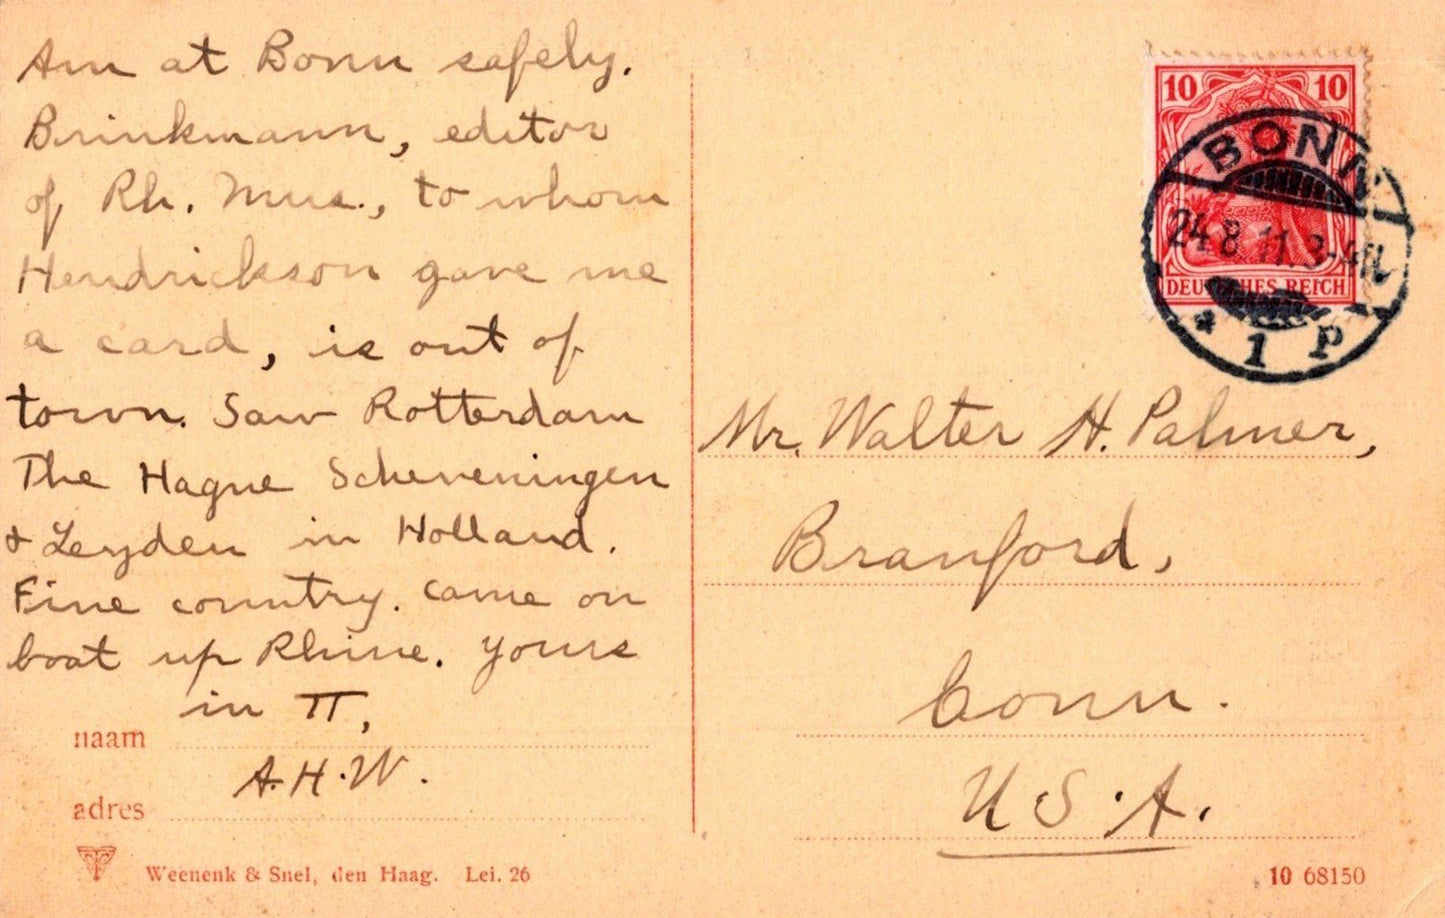 Am at Bonn safely.
Brinkmann, editor
of Rh. Mus., to whom
Hendrickson gave me
a card, is out of
town. Saw Rotterdam
The Hague Scheveningen
& Leyden in Holland.
Fine country. Came on
boat up Rhine. Yours
in π,
A.H.W.
naam
adres
Weenenk & Snel, den Haag. Lei. 26
10 10
DEUTSCHES REICH
BONN
24.8.11.3-4N.
* 1 P
Mr. Walter H. Palmer,
Branford,
Conn.
U.S.A.
10 68150